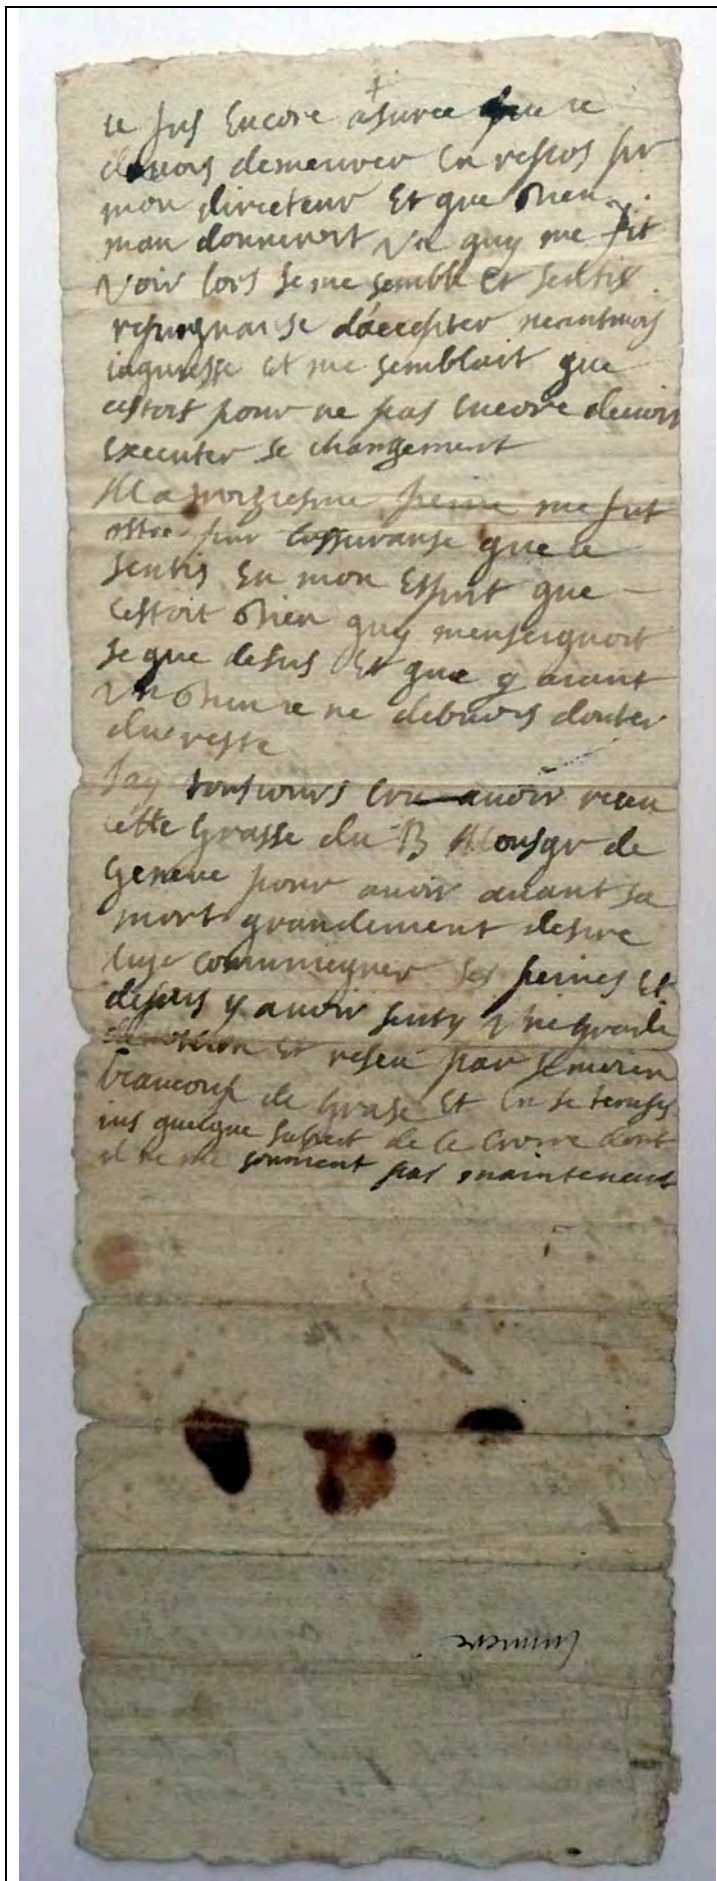 +
ie fus Encore asuree que ie
deuois demeurer En repos pr
mon directeur Et que dieu
man donneroit vn quy me fit
voir lors se me semble Et sentis
repugnanse d'accepter neantmois
iaquiesse Et me sembloit que
cestois pour ne pas Encore deuoir
Executer se changement
Ma troisiesme peine me fut
ostee par lassuranse que ie
sentis En mon Esprit que
cestoit dieu quy menseignoit
se que desus Et que y aiant
vn dieu ie ne debuois douter
du reste
Jay tousiours Cru auoir receu
cette Grasse du B Monsgr de
Geneue pour auoir auant sa
mort grandement desire
luy communiquer ses peines Et
depuis y auoir senty vne grande
deuotion Et reseu par se moien
beaucoup de Grase Et En se temps
ius quelque subiect de le Croire dont
il ne me souuient pas maintenant
lumiere